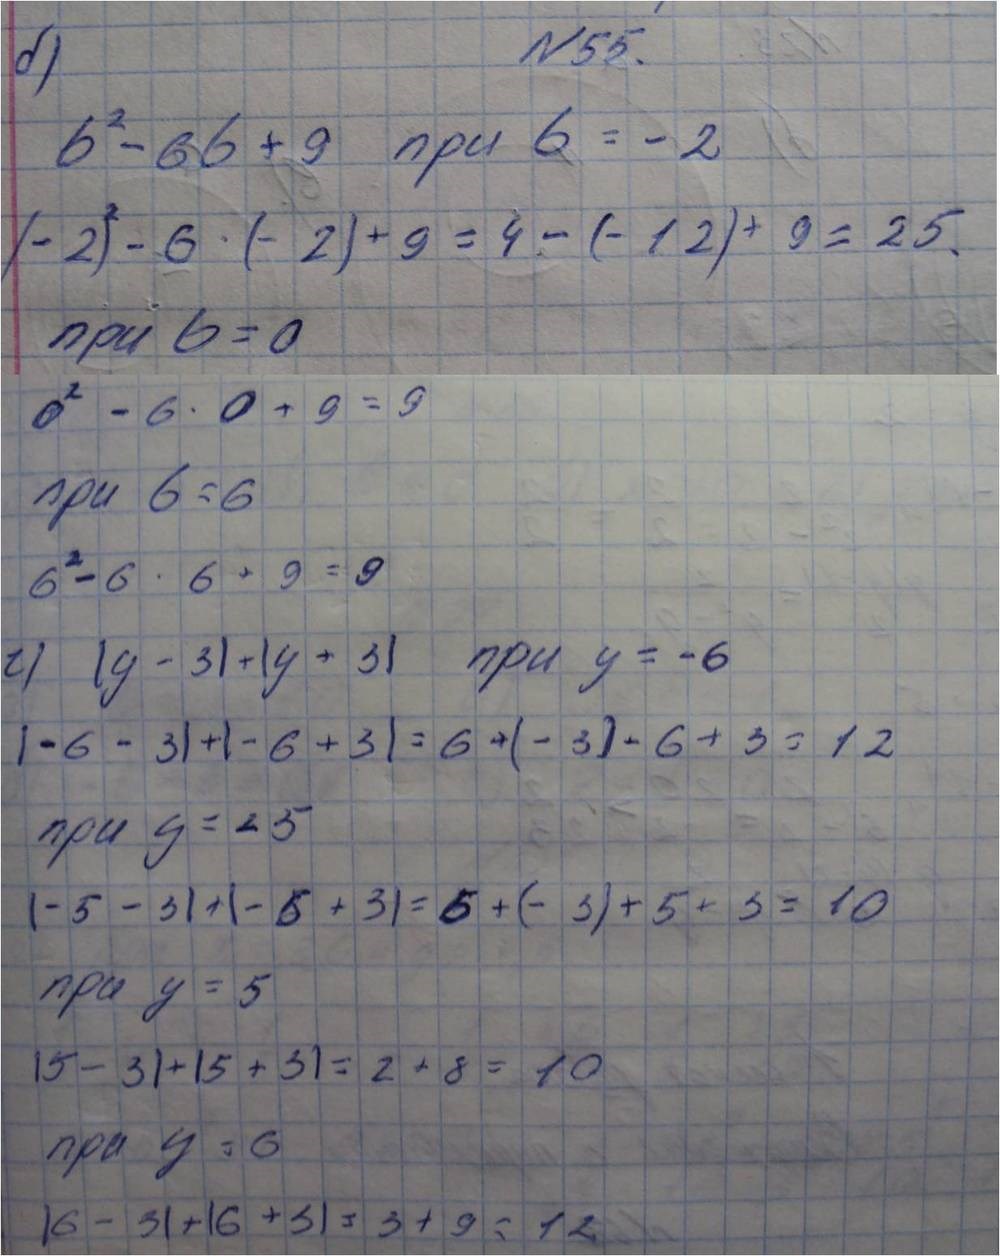 б) №55.
b² - 6b + 9 при b = -2
(-2)² - 6 · (-2) + 9 = 4 - (-12) + 9 = 25.
при b = 0
0² - 6 · 0 + 9 = 9
при b = 6
6² - 6 · 6 + 9 = 9
г) |y - 3| + |y + 3| при y = -6
|-6 - 3| + |-6 + 3| = 6 + (-3) - 6 + 3 = 12
при y = -5
|-5 - 3| + |-5 + 3| = 5 + (-3) + 5 + 3 = 10
при y = 5
|5 - 3| + |5 + 3| = 2 + 8 = 10
при y = 6
|6 - 3| + |6 + 3| = 3 + 9 = 12